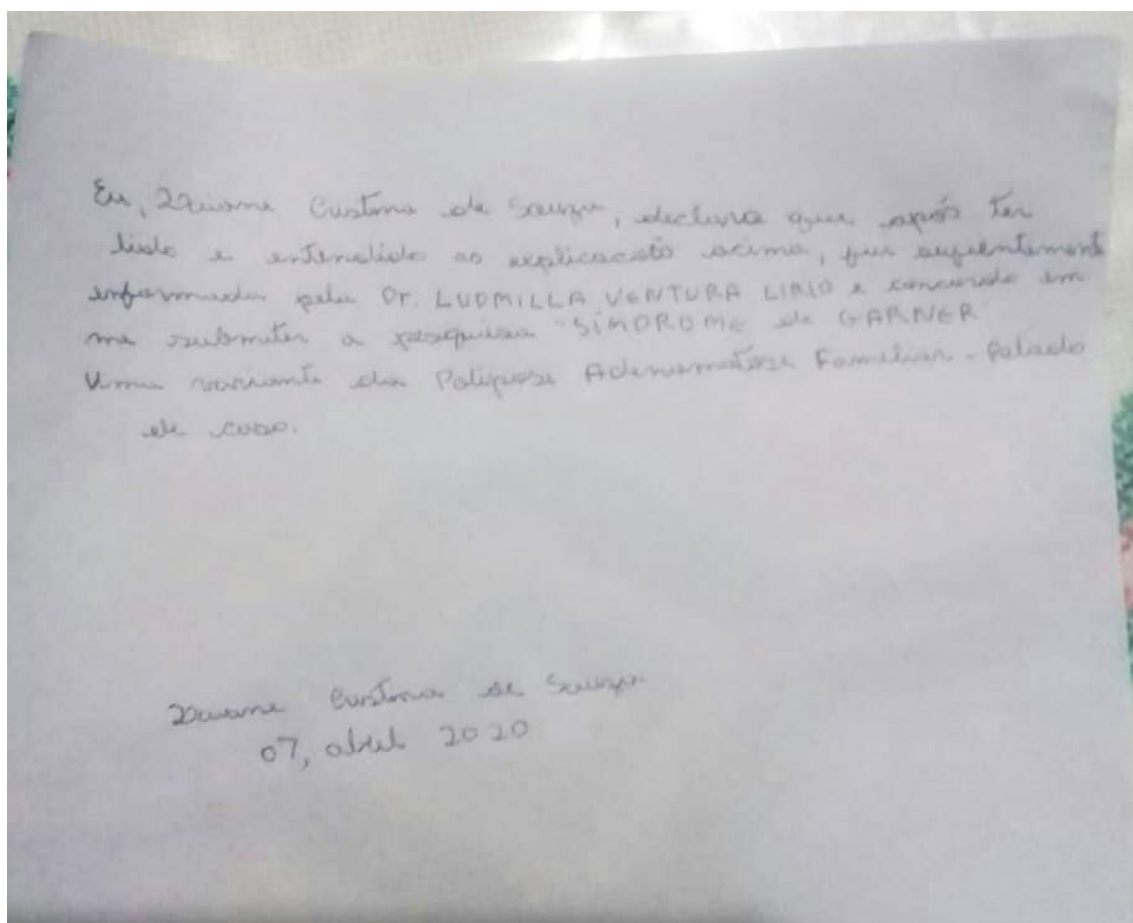 Eu, Custina de Souza, declaro que após ter
lido e entendido as explicacoês acima, fui suficientemente
informada pela Dr. LUDMILLA VENTURA LIRIO e concordo em
me submeter a pesquisa "SÍNDROME de GARNER
Uma variante da Polipose Adenomatose Familiar - Relado
de caso.
Custina de Souza
07, abril 2020